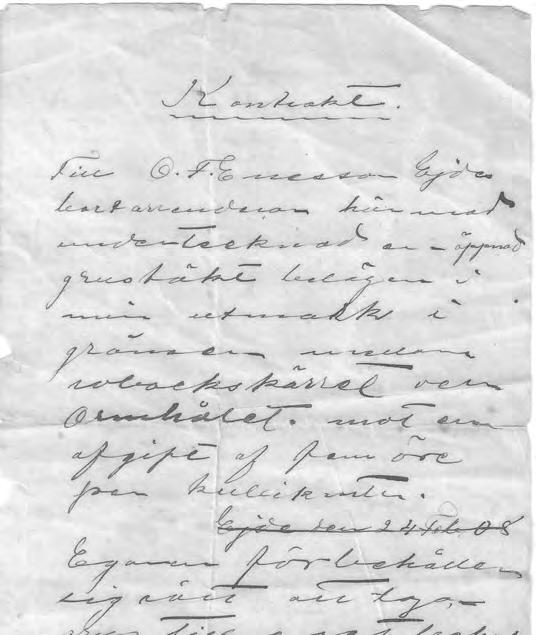 Kontrakt.
Till O. F. Ericsson Ejde
bortarrenderar härmed
undertecknad en öppnad
grustäkt belägen i
min utmark i
gränsen mellan
robackskärret och
Ormhålet. mot en
afgift af fem öre
per kubikmeter.
Ejde den 24 Feb 08
Egaren förbehåller
sig rätt att taga
grus till